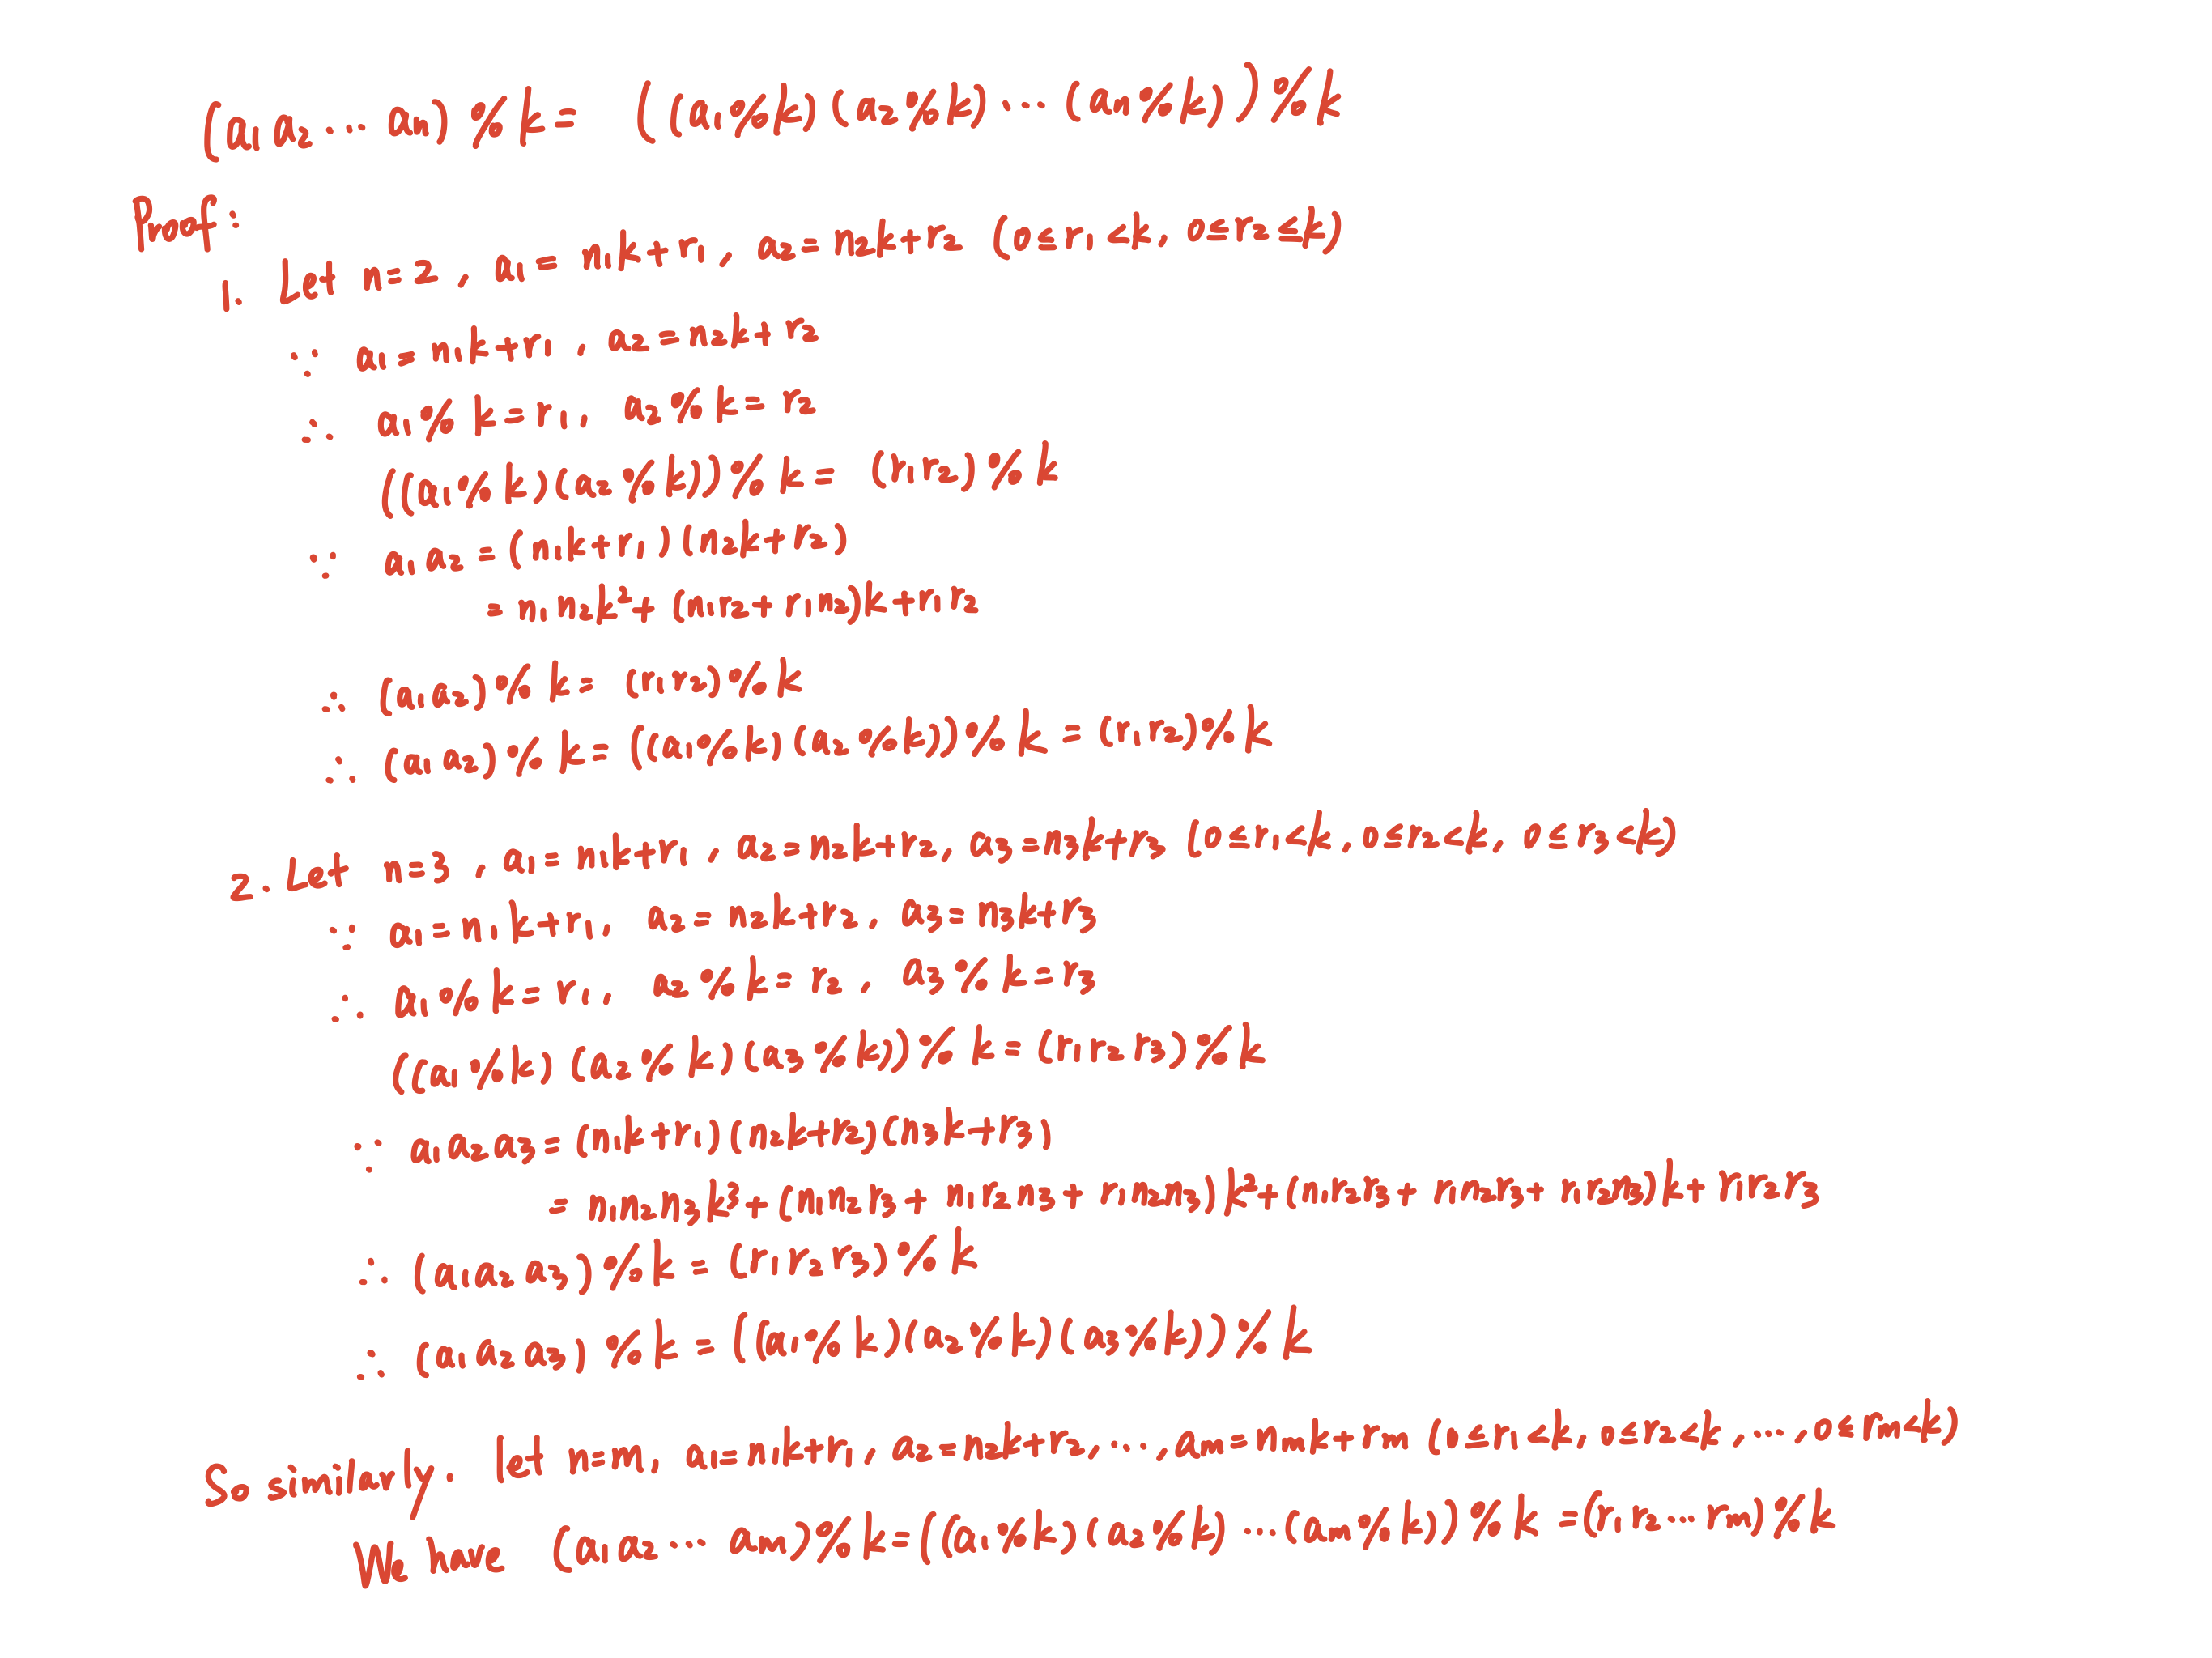 (a₁a₂⋯an)%k = ((a₁%k)(a₂%k)⋯(an%k))%k
Proof:
1. Let n=2, a₁=n₁k+r₁, a₂=n₂k+r₂ (0≤r₁≤k, 0≤r₂≤k)
∵ a₁=n₁k+r₁, a₂=n₂k+r₂
∴ a₁%k=r₁, a₂%k=r₂
((a₁%k)(a₂%k))%k = (r₁r₂)%k
∵ a₁a₂=(n₁k+r₁)(n₂k+r₂)
= n₁n₂k²+(n₁r₂+r₁n₂)k+r₁r₂
∴ (a₁a₂)%k = (r₁r₂)%k
∴ (a₁a₂)%k = ((a₁%k)(a₂%k))%k = (r₁r₂)%k
2. Let n=3, a₁=n₁k+r₁, a₂=n₂k+r₂, a₃=n₃k+r₃ (0≤r₁<k, 0≤r₂<k, 0≤r₃<k)
∵ a₁=n₁k+r₁, a₂=n₂k+r₂, a₃=n₃k+r₃
∴ a₁%k=r₁, a₂%k=r₂, a₃%k=r₃
((a₁%k)(a₂%k)(a₃%k))%k = (r₁r₂r₃)%k
∵ a₁a₂a₃=(n₁k+r₁)(n₂k+r₂)(n₃k+r₃)
= n₁n₂n₃k³+(n₁n₂r₃+n₁r₂n₃+r₁n₂n₃)k²+(n₁r₂r₃+r₁n₂r₃+r₁r₂n₃)k+r₁r₂r₃
∴ (a₁a₂a₃)%k = (r₁r₂r₃)%k
∴ (a₁a₂a₃)%k = ((a₁%k)(a₂%k)(a₃%k))%k
So similarly, let n=m, a₁=n₁k+r₁, a₂=n₂k+r₂,⋯,am=nmk+rm (0≤r₁<k, 0≤r₂<k,⋯,0≤rm<k)
We have (a₁a₂⋯am)%k=((a₁%k)(a₂%k)⋯(am%k))%k =(r₁r₂⋯rm)%k